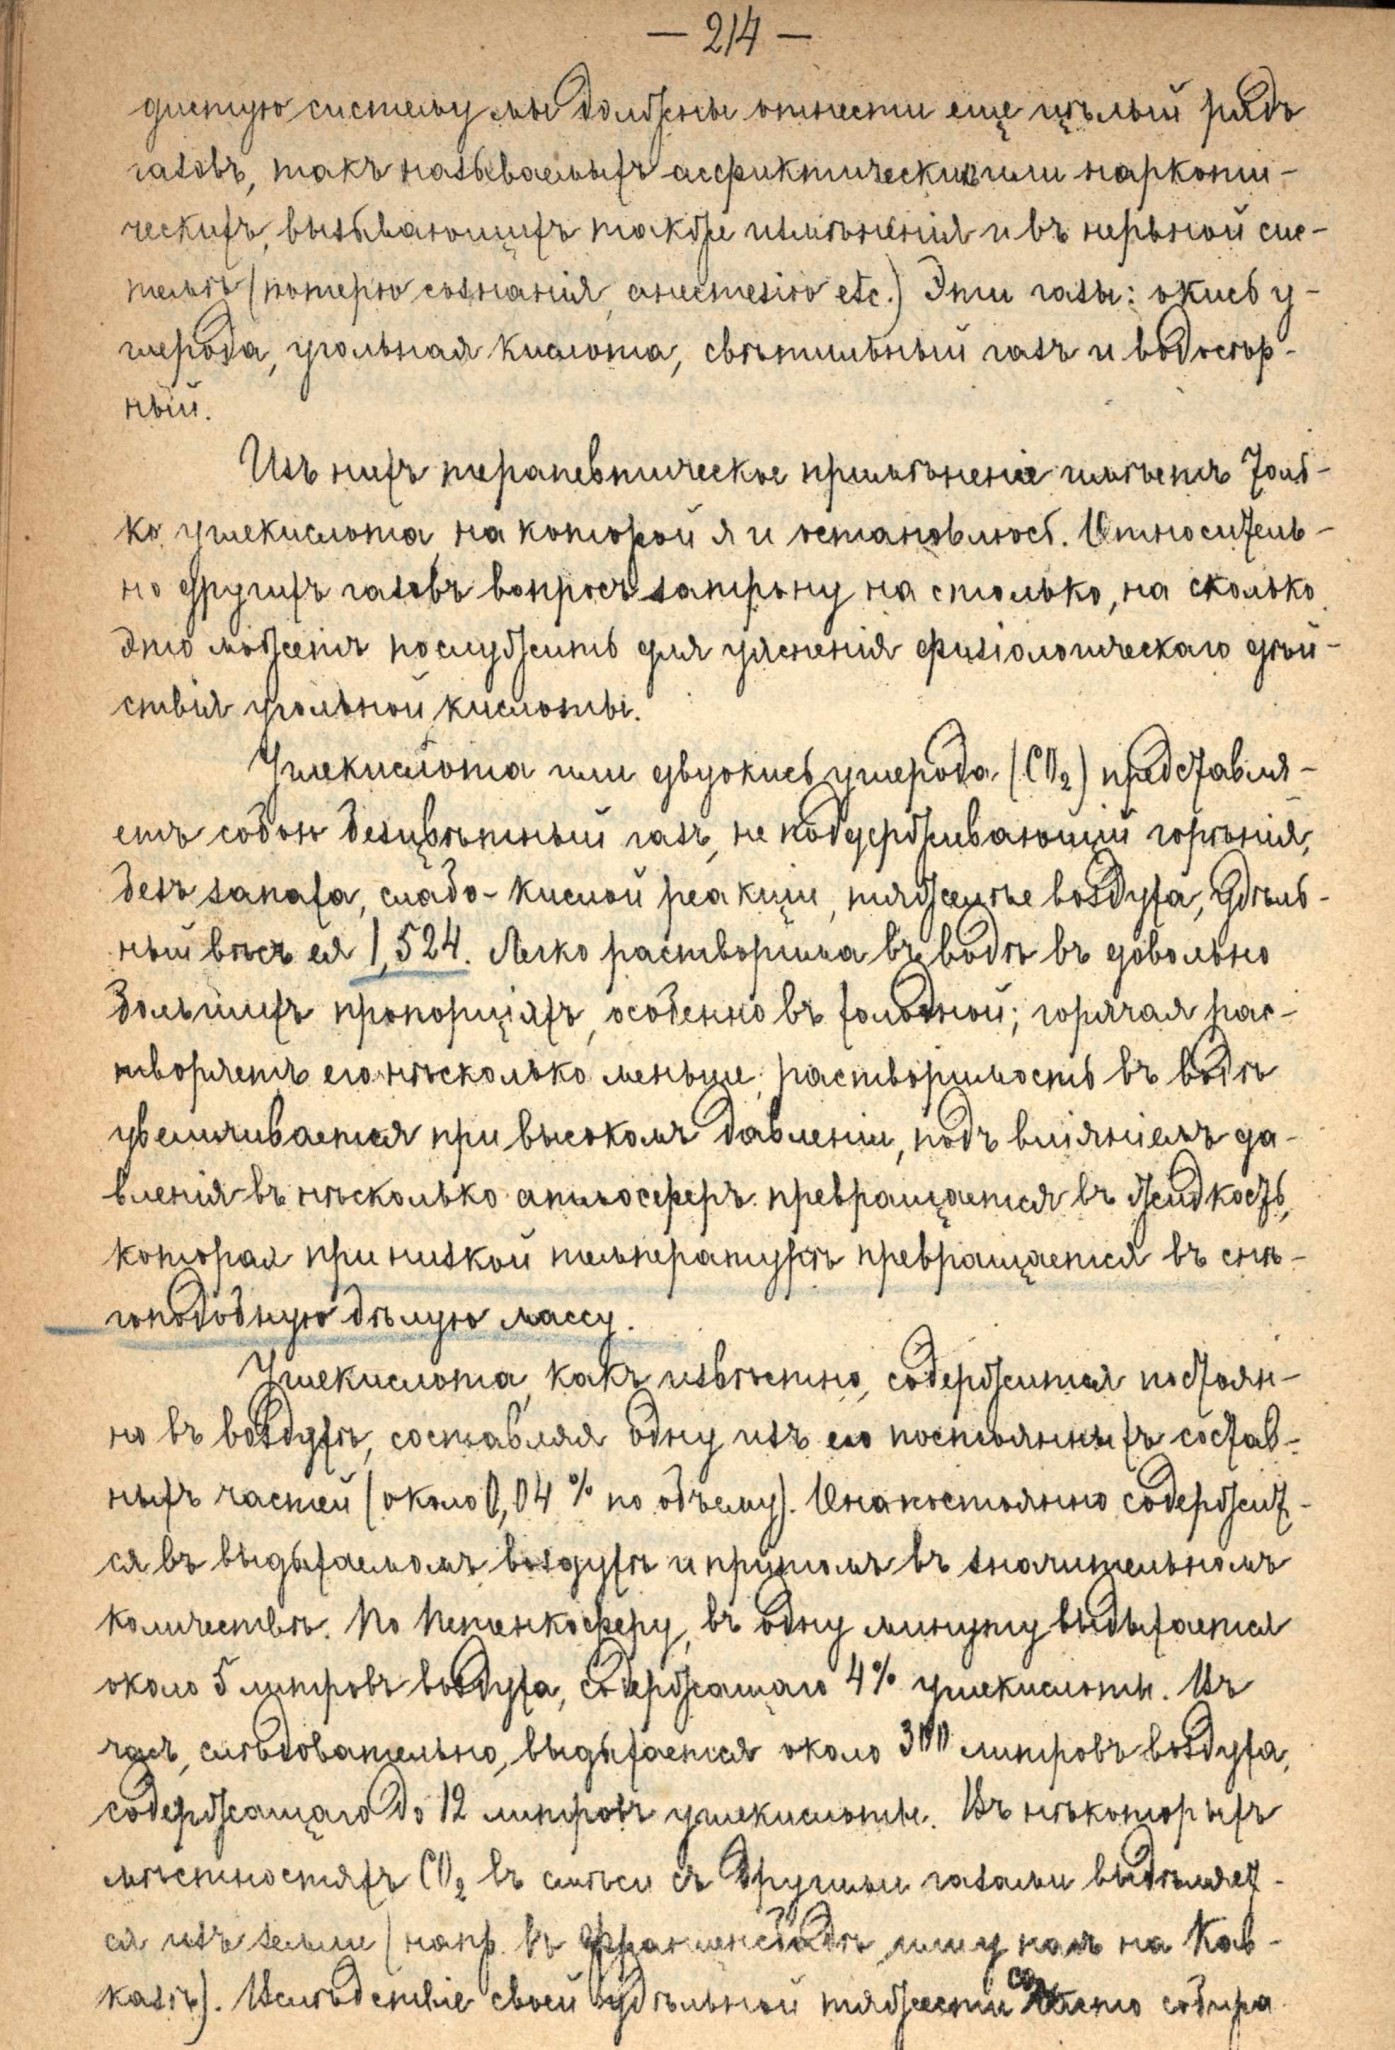 — 214 —
дистую систему мы должны отнести еще цѣлый рядъ
газовъ, такъ называемыхъ асфиктическихъ или наркоти-
ческихъ, вызывающихъ также измѣненія и въ нервной сис-
темѣ (потерю сознанія, анестезію etc.) Эти газы: окись у-
глерода, угольная кислота, свѣтильный газъ и водосѣр-
ный.
Изъ нихъ терапевтическое примѣненіе имѣетъ толь-
ко углекислота, на которой я и остановлюсь. Относитель-
но другихъ газовъ вопросъ затрону на столько, на сколько
это можетъ послужить для уясненія физіологическаго дѣй-
ствія угольной кислоты.
Углекислота или двуокись углерода (CO₂) представля-
етъ собою безцвѣтный газъ, не поддерживающій горѣнія,
безъ запаха, слабо-кислой реакціи, тяжелѣе воздуха, удѣль-
ный вѣсъ ея 1,524. Легко растворима въ водѣ въ довольно
большихъ пропорціяхъ, особенно въ холодной; горячая рас-
творяетъ его нѣсколько меньше; растворимость въ водѣ
увеличивается при высокомъ давленіи, подъ вліяніемъ да-
вленія въ нѣсколько атмосферъ превращается въ жидкость,
которая при низкой температурѣ превращается въ снѣ-
гоподобную бѣлую массу.
Углекислота, какъ извѣстно, содержится постоян-
но въ воздухѣ, составляя одну изъ его постоянныхъ состав-
ныхъ частей (около 0,04% по объему). Она постоянно содержит-
ся въ выдыхаемомъ воздухѣ и притомъ въ значительномъ
количествѣ. По Петенкоферу, въ одну минуту выдыхается
около 5 литровъ воздуха, содержащаго 4% углекислоты. Въ
часъ, слѣдовательно, выдыхается около 300 литровъ воздуха,
содержащаго до 12 литровъ углекислоты. Въ нѣкоторыхъ
мѣстностяхъ CO₂ въ смѣси съ другими газами выдѣляет-
ся изъ земли (напр. въ Франценсбадѣ, или у насъ на Кав-
казѣ). Вслѣдствіе своей удѣльной тяжести CO₂ часто собира